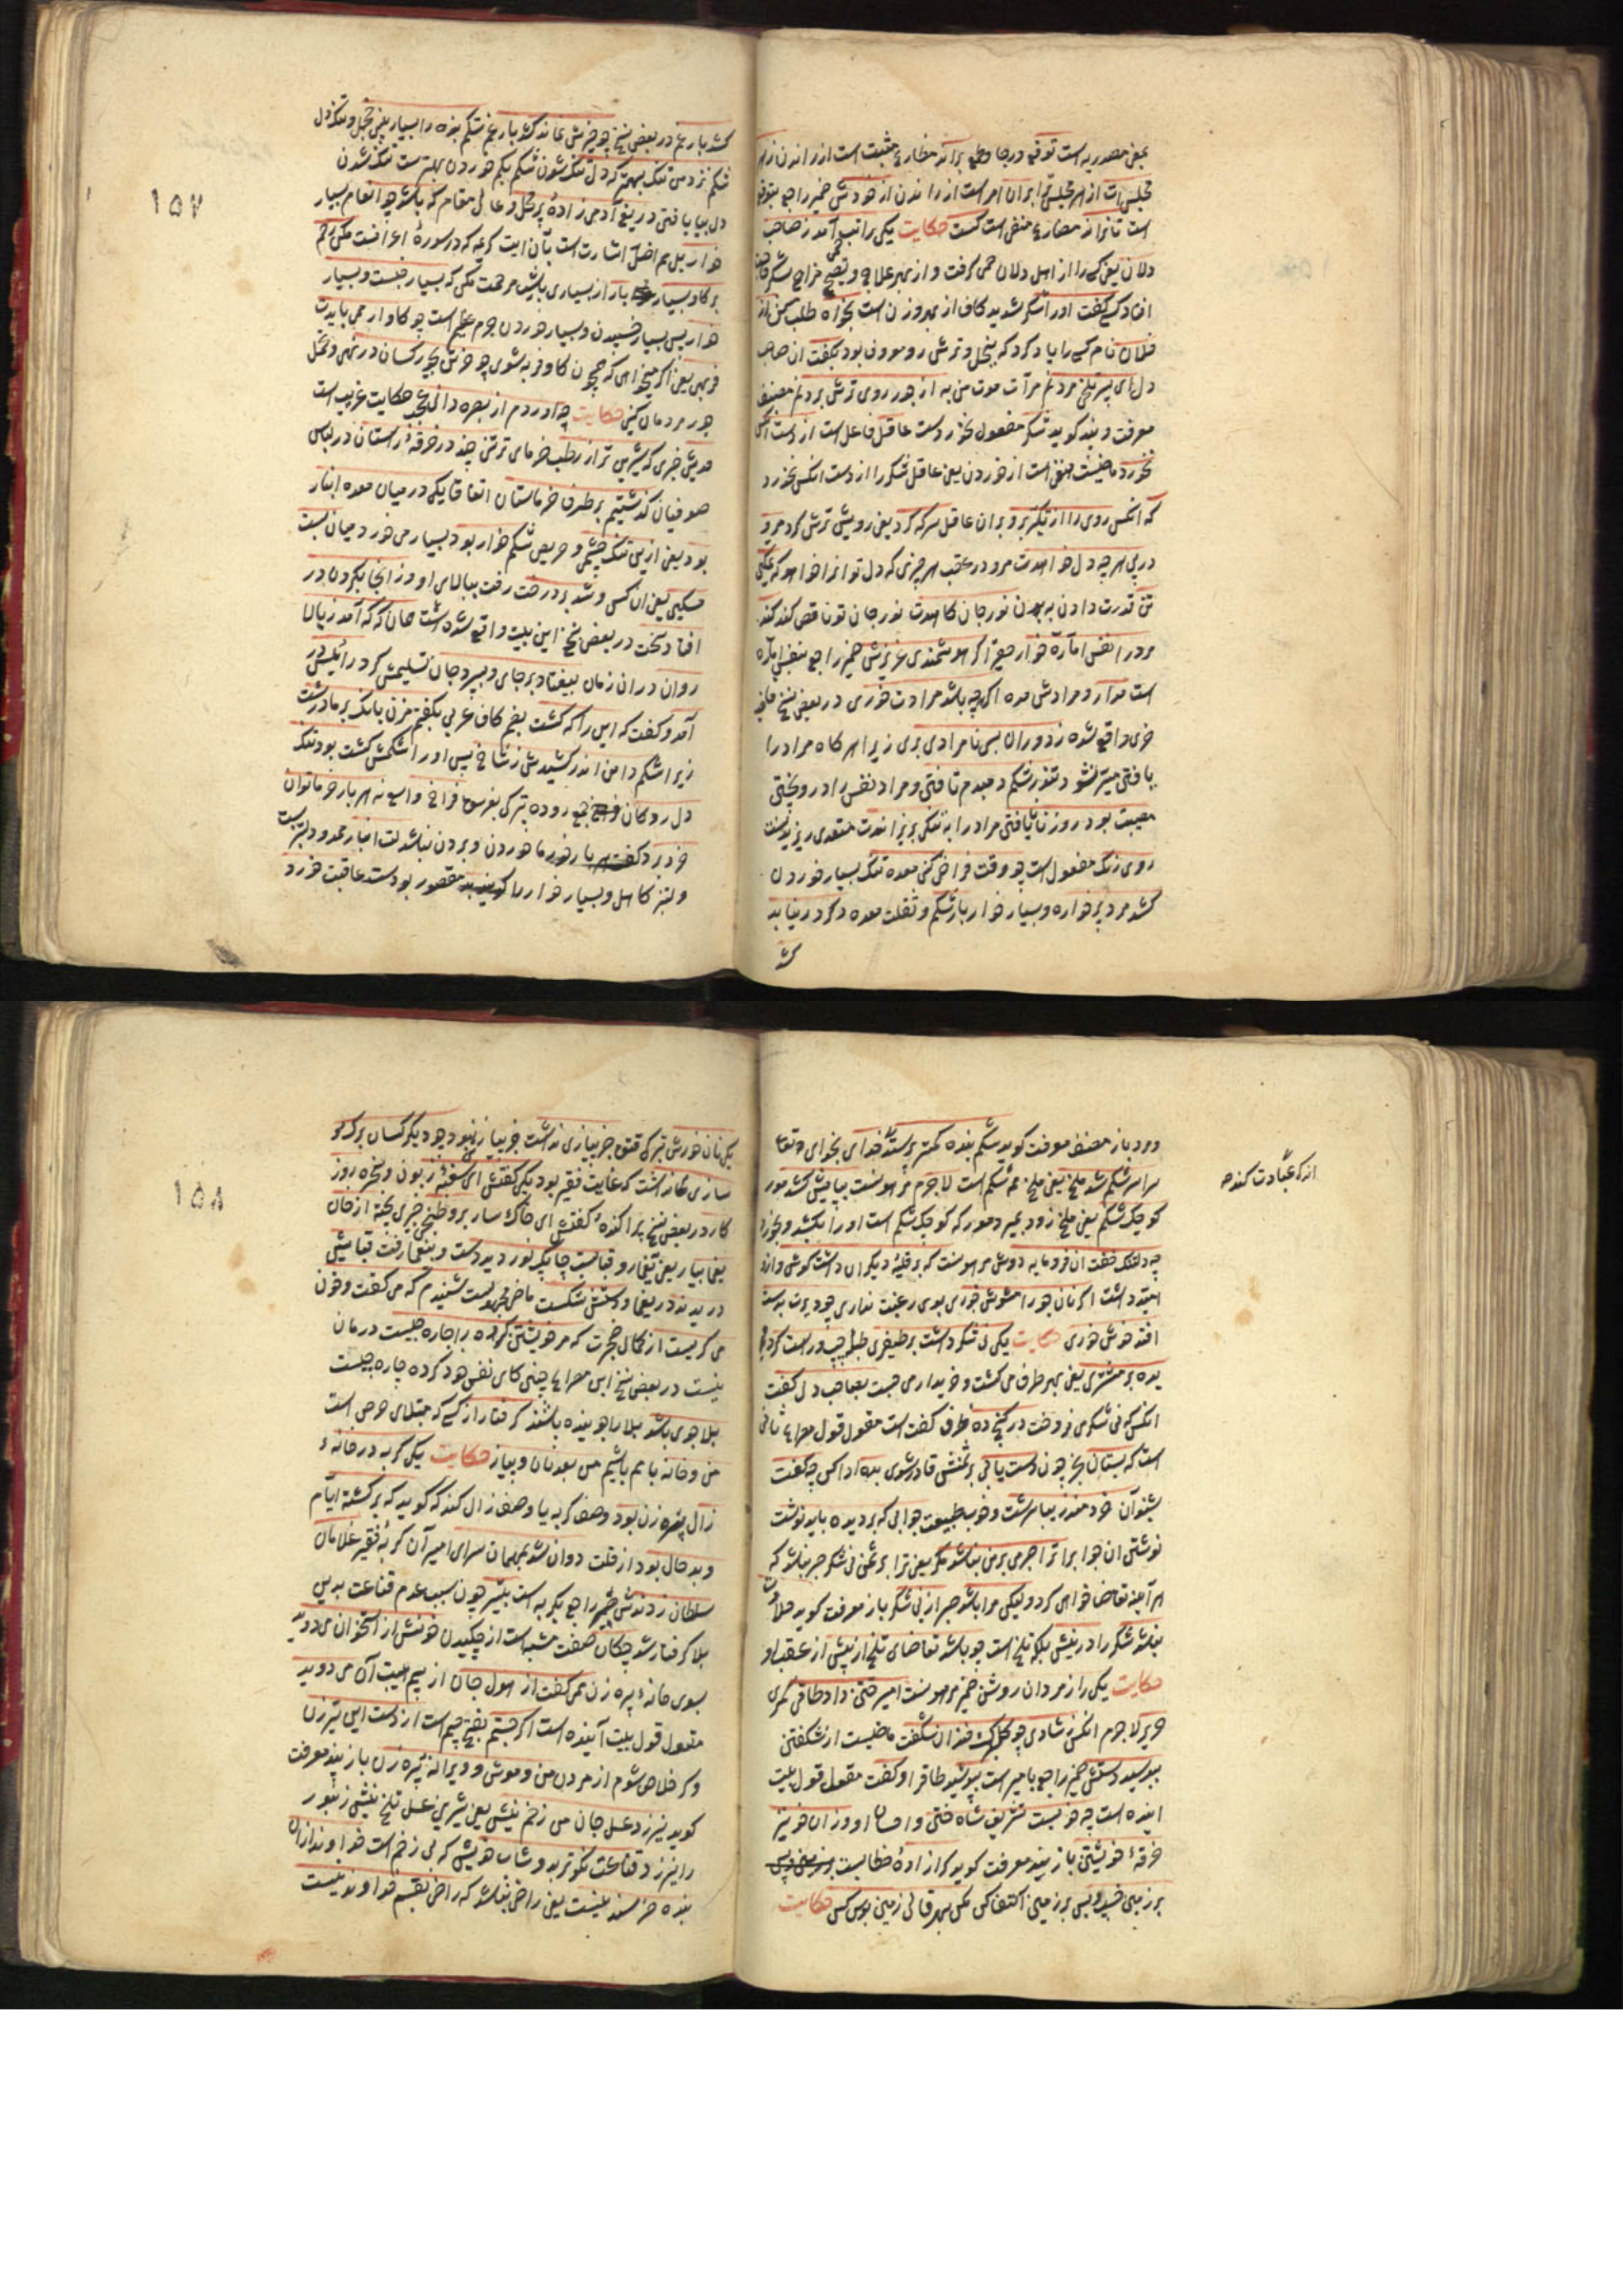 یعنی مصدریه است توقع درجا وطمع براند مضارع مثبت است از راندن از هر
مجلس‌ات از هر مجلس ترا بران امر است از راندن از خودش ضمیر راجع بتوقع
است تا نراند مضارع منفی است کست حکایت یکی را تب آمد ز صاحب
دلان یعنی کسی را از اهل دلان حمی گرفت و از بهر علاج و تصحیح مزاج
کسی گفت او را شکر شدید کاف از بهر وزن است بخواه طلب کن از
فلان نام کسی را یاد کرد که ببخل و ترش رو موون بود بگفت ان صاحب
دل ای پسر تلخی مردنم مرآت موت من به از جور روی ترش بردنم مصنف
معرفت و پند گوید شکر مفعول نخوردست عاقل فاعل است از دست انکس
نخورد ماضیست بمنفی است از خوردن یعنی عاقل شکر را از دست انکس نخورد
که انکس روی را از تکبر برو بران عاقل سرکه کرد یعنی رویش ترش کرد مرو
در پی هر چه دل خواهدت مرو در عقب هر چیزی که دل تو انرا خواهد که تمکین
تن قدرت دادن به بدن نور جان کاهدت نور جان تو ناقص کند کند
مرد را نفس اماره خوار حقیر اگر هوشمندی عزیزش ضمیر راجع بنفس اماره
است مدار و مرادش مده اگر هر چه باشد مرادت خوری در بعضی نسخ
خری واقع شده ز دوران بسی نامرادی بری زیرا هر گاه مراد را
یافتی میسر نشود تنور شکم دمبدم تافتی و مراد نفس را در وختی
مصیبت بود روز نایافتی مراد را به تنکی بریزاندت متعدی ریزیدنست
روی رنگ مفعول است چو وقت فراخی کنی معده تنگ بسیار خوردن
کشد مرد پرخواره و بسیار خوار بار شکم و ثقلت معده وگر در نیابد
کشد
کشد بار غم در بعضی نسخ چو چیزش نماند کشد بار غم شکم بنده را بسیار بینی خجل و تنگ دل
شکم نزد من تنگ بهتر که دل تنگ شدن شکم بکم خوردن بهتر است تنگ شدن
دل بیا یافتی دریغ آدمی زاده پرمحل و عالی مقام که باشد چو انعام بسیار
خوار بل هم اضل اشارتست بآن ایت کریمه که در سوره اعرافست مکن رحم
بر گاو بسیار بار از بسیاری بالش مرحمت مکن که بسیار خسبست و بسیار
خوار پس بسیار خسپیدن و بسیار خوردن جرم عظیم است چو گاو ار همی بایدت
فربهی یعنی اگر میخواهی که همچون گاو فربه شوی چو خر تن بجور کسان در نهی و تحمل
جور مردمان کنی حکایت چه آوردم از بصره دانی عجب حکایت غریب است
حدیثی خبری که شیرین تر از رطب خرمای تر تنی چند در خرقه راستان در لباس
صوفیان گذشتیم بر طرف خرماستان اتفاقا یکی در میان معده انبار
بود یعنی ازین تنگ چشمی و حریص شکم خوار بود بسیار می خورد میان بست
مسکین یعنی ان کس و شد بر درخت رفت ببالای او وز انجا بگردن در
افتاد سخت در بعضی نسخ این بیت واقع شده است همان که که آمد ز بالا
روان در ان زمان بیفتاد بر جای و بسپرد جان تسلیمش کرد رئیس ده
آمد و گفت که این را که کشت بضم کاف عربی بگفتم مزن بانک بر ما درشت
زیرا شکم دامن اندر کشیدش ز شاخ پس او را شکمش کشت بود تنگ
دل رودگان جمع روده ترکی بغرسق فراخ واسع نه هر بار خرما توان
خورد و برد خوردن و بردن نباشدت انبار
و لیز کاهل و بسیار خوار را مقصور بودست عاقبت خورد
۱۵۷
و مرد باز مصنف معرفت گوید شکم بنده کمتر پرستد خدای بجوای وتعا
سراسر شکم شد ملخ یعنی ملخ همه شکم است لاجرم مرهونست بپایش کشد مور
کوچک شکم یعنی ملخ زود بمیرد مور که کوچک شکم است او را بکشد و بخورد
چه دلتنگ خفت ان فرومایه دوش مرهونست که بر قلیه دیگران داشت گوش و از
امید داشت اگر نان جو را مشوش خوری بوی رغبت نداری چو دیرت بدست
افتد خوش خوری حکایت یکی نی شکر داشت بر طیفری طبلق چپ و راست گردنده
بد بر مشتری یعنی بهر طرف می گشت و خریدار می جست بصاحب دل گفت
انکس که نی شکر می فروخت در گنج ده طرف گفت است مقول قول مصراع ثانی
است که بستان بخر چون دست یابی بر ثمنش قادر شوی بده ادا کن چه گفت
شنو آن خردمند زیبا سرشت و خوب طبیعت جوابی که بر دیده باید نوشت
نوشتن ان جواب ترا اجر می بر من نباشد مگر یعنی ترا بر ثمن نی شکر صبر نباشد که
هر آینه تقاضا خواهی کرد ولیکن مرا باشد صبر از نی شکر باز معرفت گوید حلاوت
نباشد شکر را در نیش بلکه تلخ است چو باشد تقاضای تلخ از پیش از عقب او
حکایت یکی را ز مردان روشن ضمیر مرهونست امیر ختن داد طاقی گمری
حریر لاجرم انکس ز شادی چو گلبرگ خندان شگفت ماضیست از شگفتن
ببوسید دستش ضمیر راجع بامیر است بپوشید طاقرا و گفت مقول قول بیت
اینده است چه خوبست تشریف شاه ختن و احسان او وز ان خوبتر
خرقه خویشتن باز پیند معرفت گوید گر ازاده خطابست
بر زمین خسپ و بس بر زمین اکتفا کن مکن بهر قالی زمین بوس کس حکایت
انرکه عبادت کند ح
یکی نان خورش ترکی قتق جز پیازی نداشت جز پیاز نبود چو دیگر کسان برگ و
سازی نداشت که غایت فقیر بود یکی گفتش ای سغبه زبون و سخره روز
کار در بعضی نسخ پراکنده گفتش ای خاکسار برو طبخی چیزی پخته از خان
یغما بیار یعنی و قبا بست چابک نوردید دست و بیغما رفت قبایش
دریدند در یغما و دستش شکست ماضی مجهولست شنیدم که می گفت و خون
می گریست از کمال حیرت که مر خویشتن کرده را چاره چیست درمان
نیست در بعضی نسخ این مصراع چنین کای نفس خود کرده چاره چیست
بلا جوی باشد بلا را جوینده باشد گرفتار از کسی که مبتلای حرص است
من و خانه با هم باشیم من بعد نان و پیاز حکایت یکی گربه در خانه
زال پیره زن بود وصف گربه یا وصف زال کند که گوید که برگشته ایام
و بد حال بود از قلت دوان شد بمهمان سرای امیر آن گربه فقیر غلامان
سلطان زدندش ضمیر راجع بگربه است بتیر چون سبب عدم قناعت بدین
بلا گرفتار شد چکان صفت مشبه است از چکیدن خونش از استخوان می دوید
بسوی خانه پیره زن همی گفت از هول جان از بیم هیبت آن می دوید
مقول قول بیت آینده است اگر جستم بفتح جیم است از دست این تیر زن
وگر خلاص شوم از مردن من و موش و ویرانه پیره زن باز پیند معرفت
گوید نیرزد عسل جان من زخم نیش یعنی شیرینی عسل تلخ نیش زنبور
را نیرزد قناعت نکوتر بدوشاب خویش که بی زخم است خداوند از ان
بنده خرسند نیست یعنی راضی نباشد که راضی بقسم خداوند نیست
۱۵۸